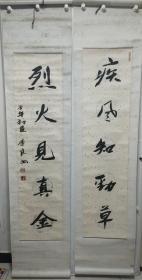 疾风知劲草
烈火見真金